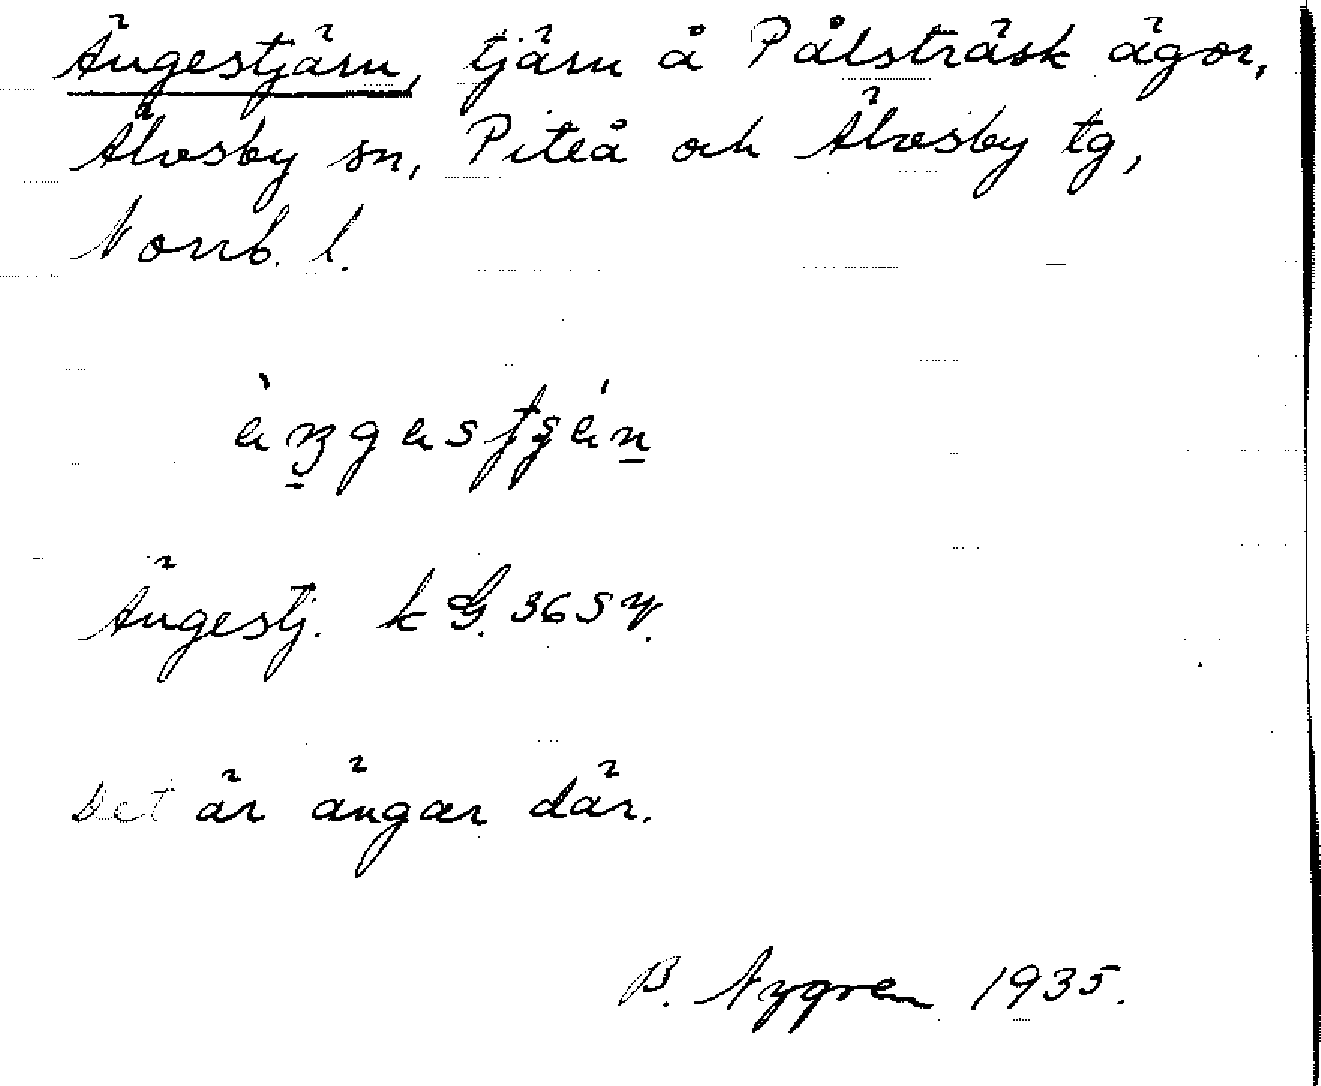 Ängestjärn, tjärn å Pålsträsk ägor,
Älvsby sn, Piteå och Älvsby tg,
Norrb. l.
Ängestj. k G. 36 S
Det är ängar där.
B. Nygren 1935.